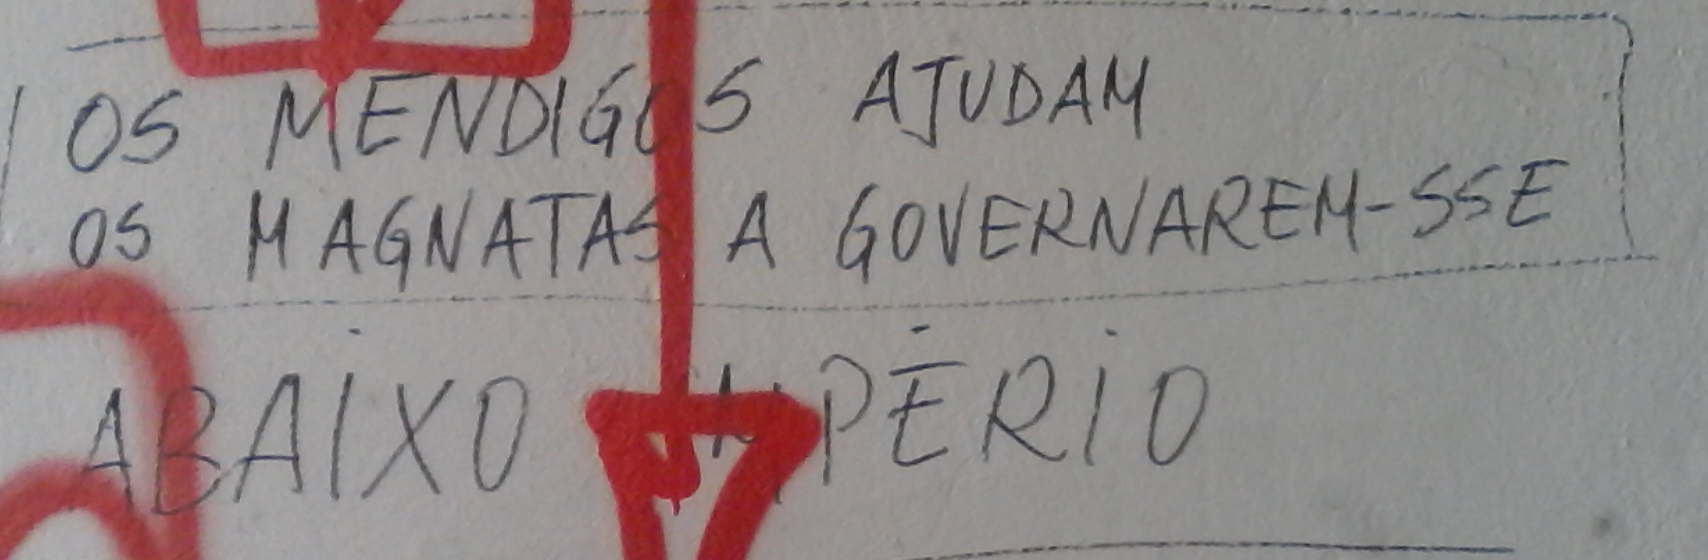 OS MENDIGOS AJUDAM
OS MAGNATAS A GOVERNAREM-SSE
ABAIXO IMPÉRIO